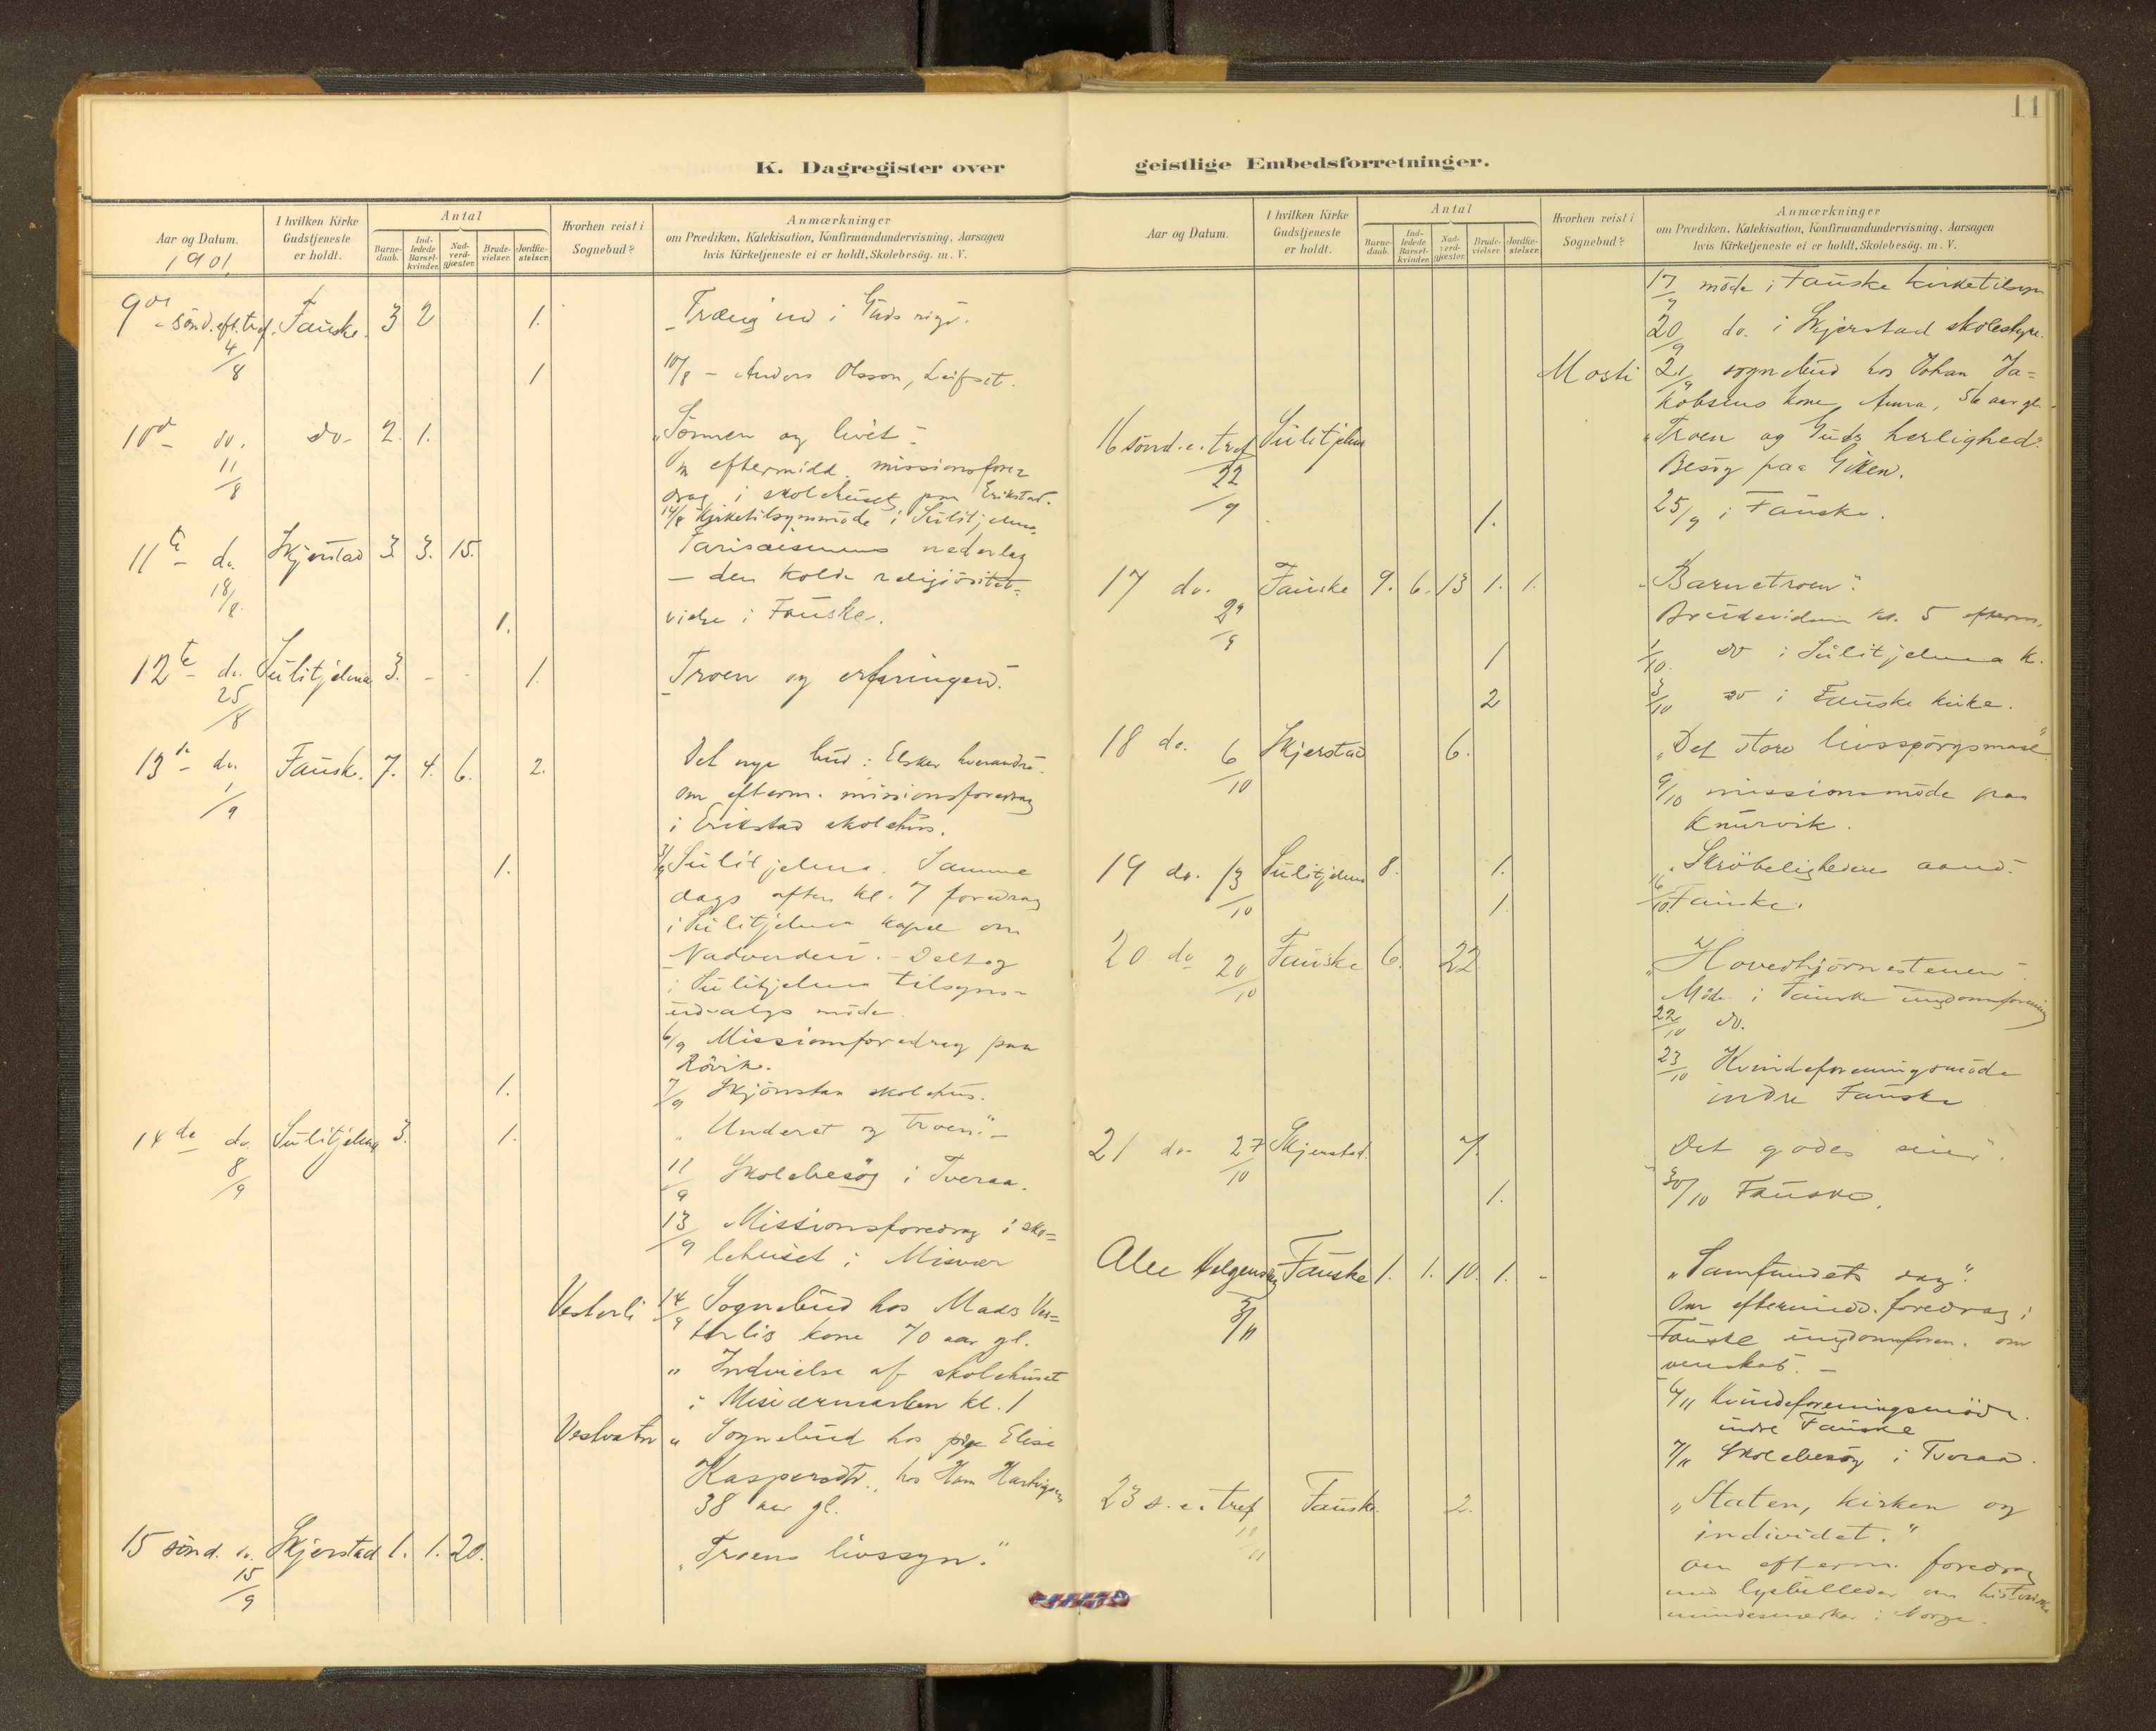 11
K. Dagregister over geistlige Embedsforretninger.
Aar og Datum.
1901.
I hvilken Kirke Gudstjeneste er holdt.
Antal
Barnedaab.
Indledede Barselkvinder.
Nadverdgjæster.
Brudevielser.
Jordfæstelser.
Hvorhen reist i Sognebud?
Anmærkninger
om Prædiken, Katekisation, Konfirmandundervisning, Aarsagen
hvis Kirketjeneste ei er holdt, Skolebesög. m. V.
9de sönd. eft. tref. 4/8 Fauske. 3 2 1. Træng ind i Guds rige.
1 10/8 - Anders Olsson, Leifset.
10de do. 11/8 do. 2. 1. "Sönnen og livet".
Om eftermidd. missionsfore=
drag i skolehuset paa Erikstad.
14/8 Kirketilsynsmöde i Sulitjelma.
11te do. 18/8. Skjerstad 3. 3. 15. Farisæismens nederlag
- den kolde religiösitet.
1. vielse i Fauske.
12te do. 25/8 Sulitjelma 3. - - 1. Troen og erfaringen.
13de do. 1/9 Fausk. 7. 4. 6. 2. Det nye bud: Elsker hverandre.
Om efterm. missionsforedrag
i Erikstad skolehus.
1. 3/9 Sulitjelma. Samme
dags aften kl. 7 foredrag
i Sulitjelma kapel om
Nadverden. - Deltog
i Sulitjelma tilsyns-
udvalgs möde.
6/9 Missionsforedrag paa
Rövik.
1. 7/9 Skjönstaa skolehus.
14de do. 8/9 Sulitjelma 3. 1. "Underet og troen." -
11/9 Skolebesög i Tveraa.
13/9 Missionsforedrag i sko=
lehuset i Misvær
Vesterli 14/9 Sognebud hos Mads Ves=
terlis kone 70 aar gl.
" Indvielse af skolehuset
i Misværmarken kl. 1
Vestvatn " Sognebud hos pige Elise
Kaspersdtr., hos Hans Hartvigsen
38 aar gl.
15 sönd. do. 15/9 Skjerstad 1. 1. 20. "Troens livssyn."
Aar og Datum.
I hvilken Kirke Gudstjeneste er holdt.
Antal
Barnedaab.
Indledede Barselkvinder.
Nadverdgjæster.
Brudevielser.
Jordfæstelser.
Hvorhen reist i Sognebud?
Anmærkninger
om Prædiken, Katekisation, Konfirmandundervisning, Aarsagen
hvis Kirketjeneste ei er holdt, Skolebesög. m. V.
17/9 möde i Fauske kirketilsyn
20/9 do. i Skjerstad skolestyre.
Mosti 21/9 sognebud hos Johan Ja=
kobsens kone Anna, 56 aar gl.
16 sönd. e. tref 22/9 Sulitjelma "Troen og Guds herlighed".
Besög paa Giken.
1. 25/9 i Fauske.
17 do. 29/9 Fauske 9. 6. 13 1. 1. "Barnetroen".
Brudevielsen kl. 5 efterm.
1 1/10. do i Sulitjelma k.
2 3/10 do i Fauske kirke.
18 do. 6/10 Skjerstad 6. "Det store livsspörgsmaal".
9/10 missionsmöde paa
Knurvik.
19 do. 13/10 Sulitjelma 8. 1. "Skröbelighedens aand".
1. 16/10. Fauske.
20 do 20/10 Fauske 6. 22 "Hovedhjörnestenen".
Möde i Fauske ungdomsforening
22/10 do.
23/10 Kvindeforeningsmöde
indre Fauske
21 do 27/10 Skjerstad. 7. Det godes seier".
1. 30/10 Fauske.
Alle Helgensdag 3/11 Fauske 1. 1. 10. 1. - "Samfundets dag".
Om eftermidd. foredrag i
Fauske ungdomsforen. om
venskab. -
6/11 Kvindeforeningsmöde.
indre Fauske
7/11 Skolebesög i Tveraa.
23 s. e. tref 10/11 Fausk. 2. "Staten, kirken og
individet."
Om efterm. foredrag
med lysbilleder om historiske
mindesmærker i Norge.